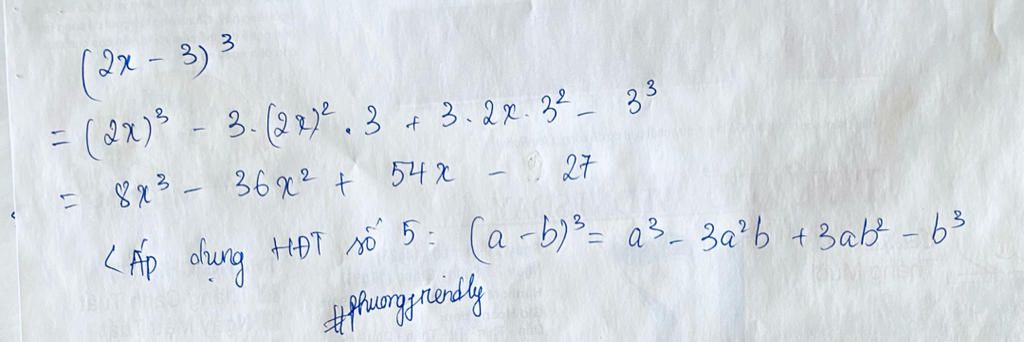 (2x - 3)³
= (2x)³ - 3.(2x)². 3 + 3.2x.3² - 3³
= 8x³ - 36x² + 54x - 27
<Áp dụng HĐT số 5: (a-b)³= a³- 3a²b +3ab² - b³
#phuongfriendly